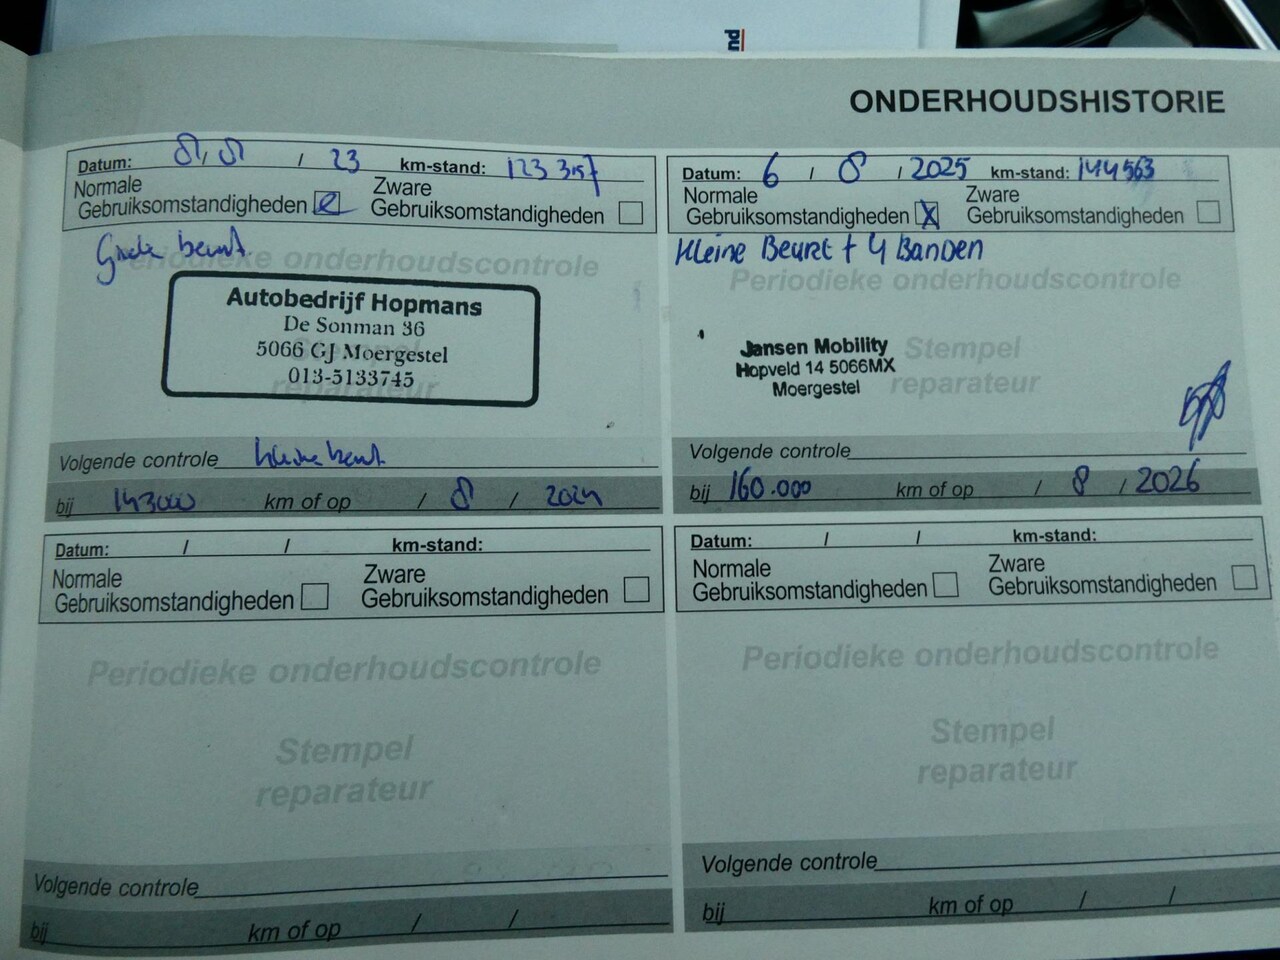 pu
ONDERHOUDSHISTORIE
Datum: 8 / 8 / 23 km-stand: 123 357
Normale Gebruiksomstandigheden Zware Gebruiksomstandigheden
Grote beurt
Periodieke onderhoudscontrole
Autobedrijf Hopmans
De Sonman 36
5066 GJ Moergestel
013-5133745
Stempel
reparateur
Volgende controle kleine beurt
bij 143000 km of op / 8 / 2024
Datum: 6 / 8 / 2025 km-stand: 144563
Normale Gebruiksomstandigheden X Zware Gebruiksomstandigheden
Kleine Beurt + 4 Banden
Periodieke onderhoudscontrole
Jansen Mobility
Hopveld 14 5066MX
Moergestel
Stempel
reparateur
Volgende controle
bij 160.000 km of op / 8 / 2026
Datum: / / km-stand:
Normale Gebruiksomstandigheden Zware Gebruiksomstandigheden
Periodieke onderhoudscontrole
Stempel
reparateur
Volgende controle
bij km of op / /
Datum: / / km-stand:
Normale Gebruiksomstandigheden Zware Gebruiksomstandigheden
Periodieke onderhoudscontrole
Stempel
reparateur
Volgende controle
bij km of op / /